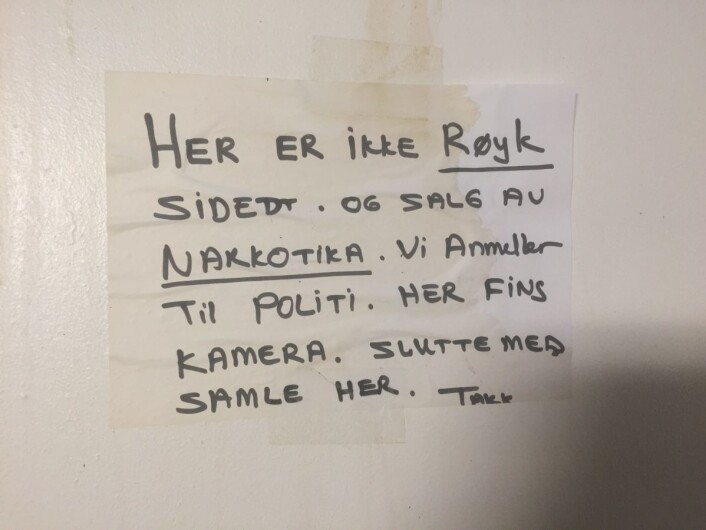 HER ER iKKE Røyk
SiDEDT. OG SALG AV
NAKKOTIKA. Vi Anmeller
Til POLiTi. HER FiNS
KAMERA. SLUTTE MED
SAMLE HER. TAKK